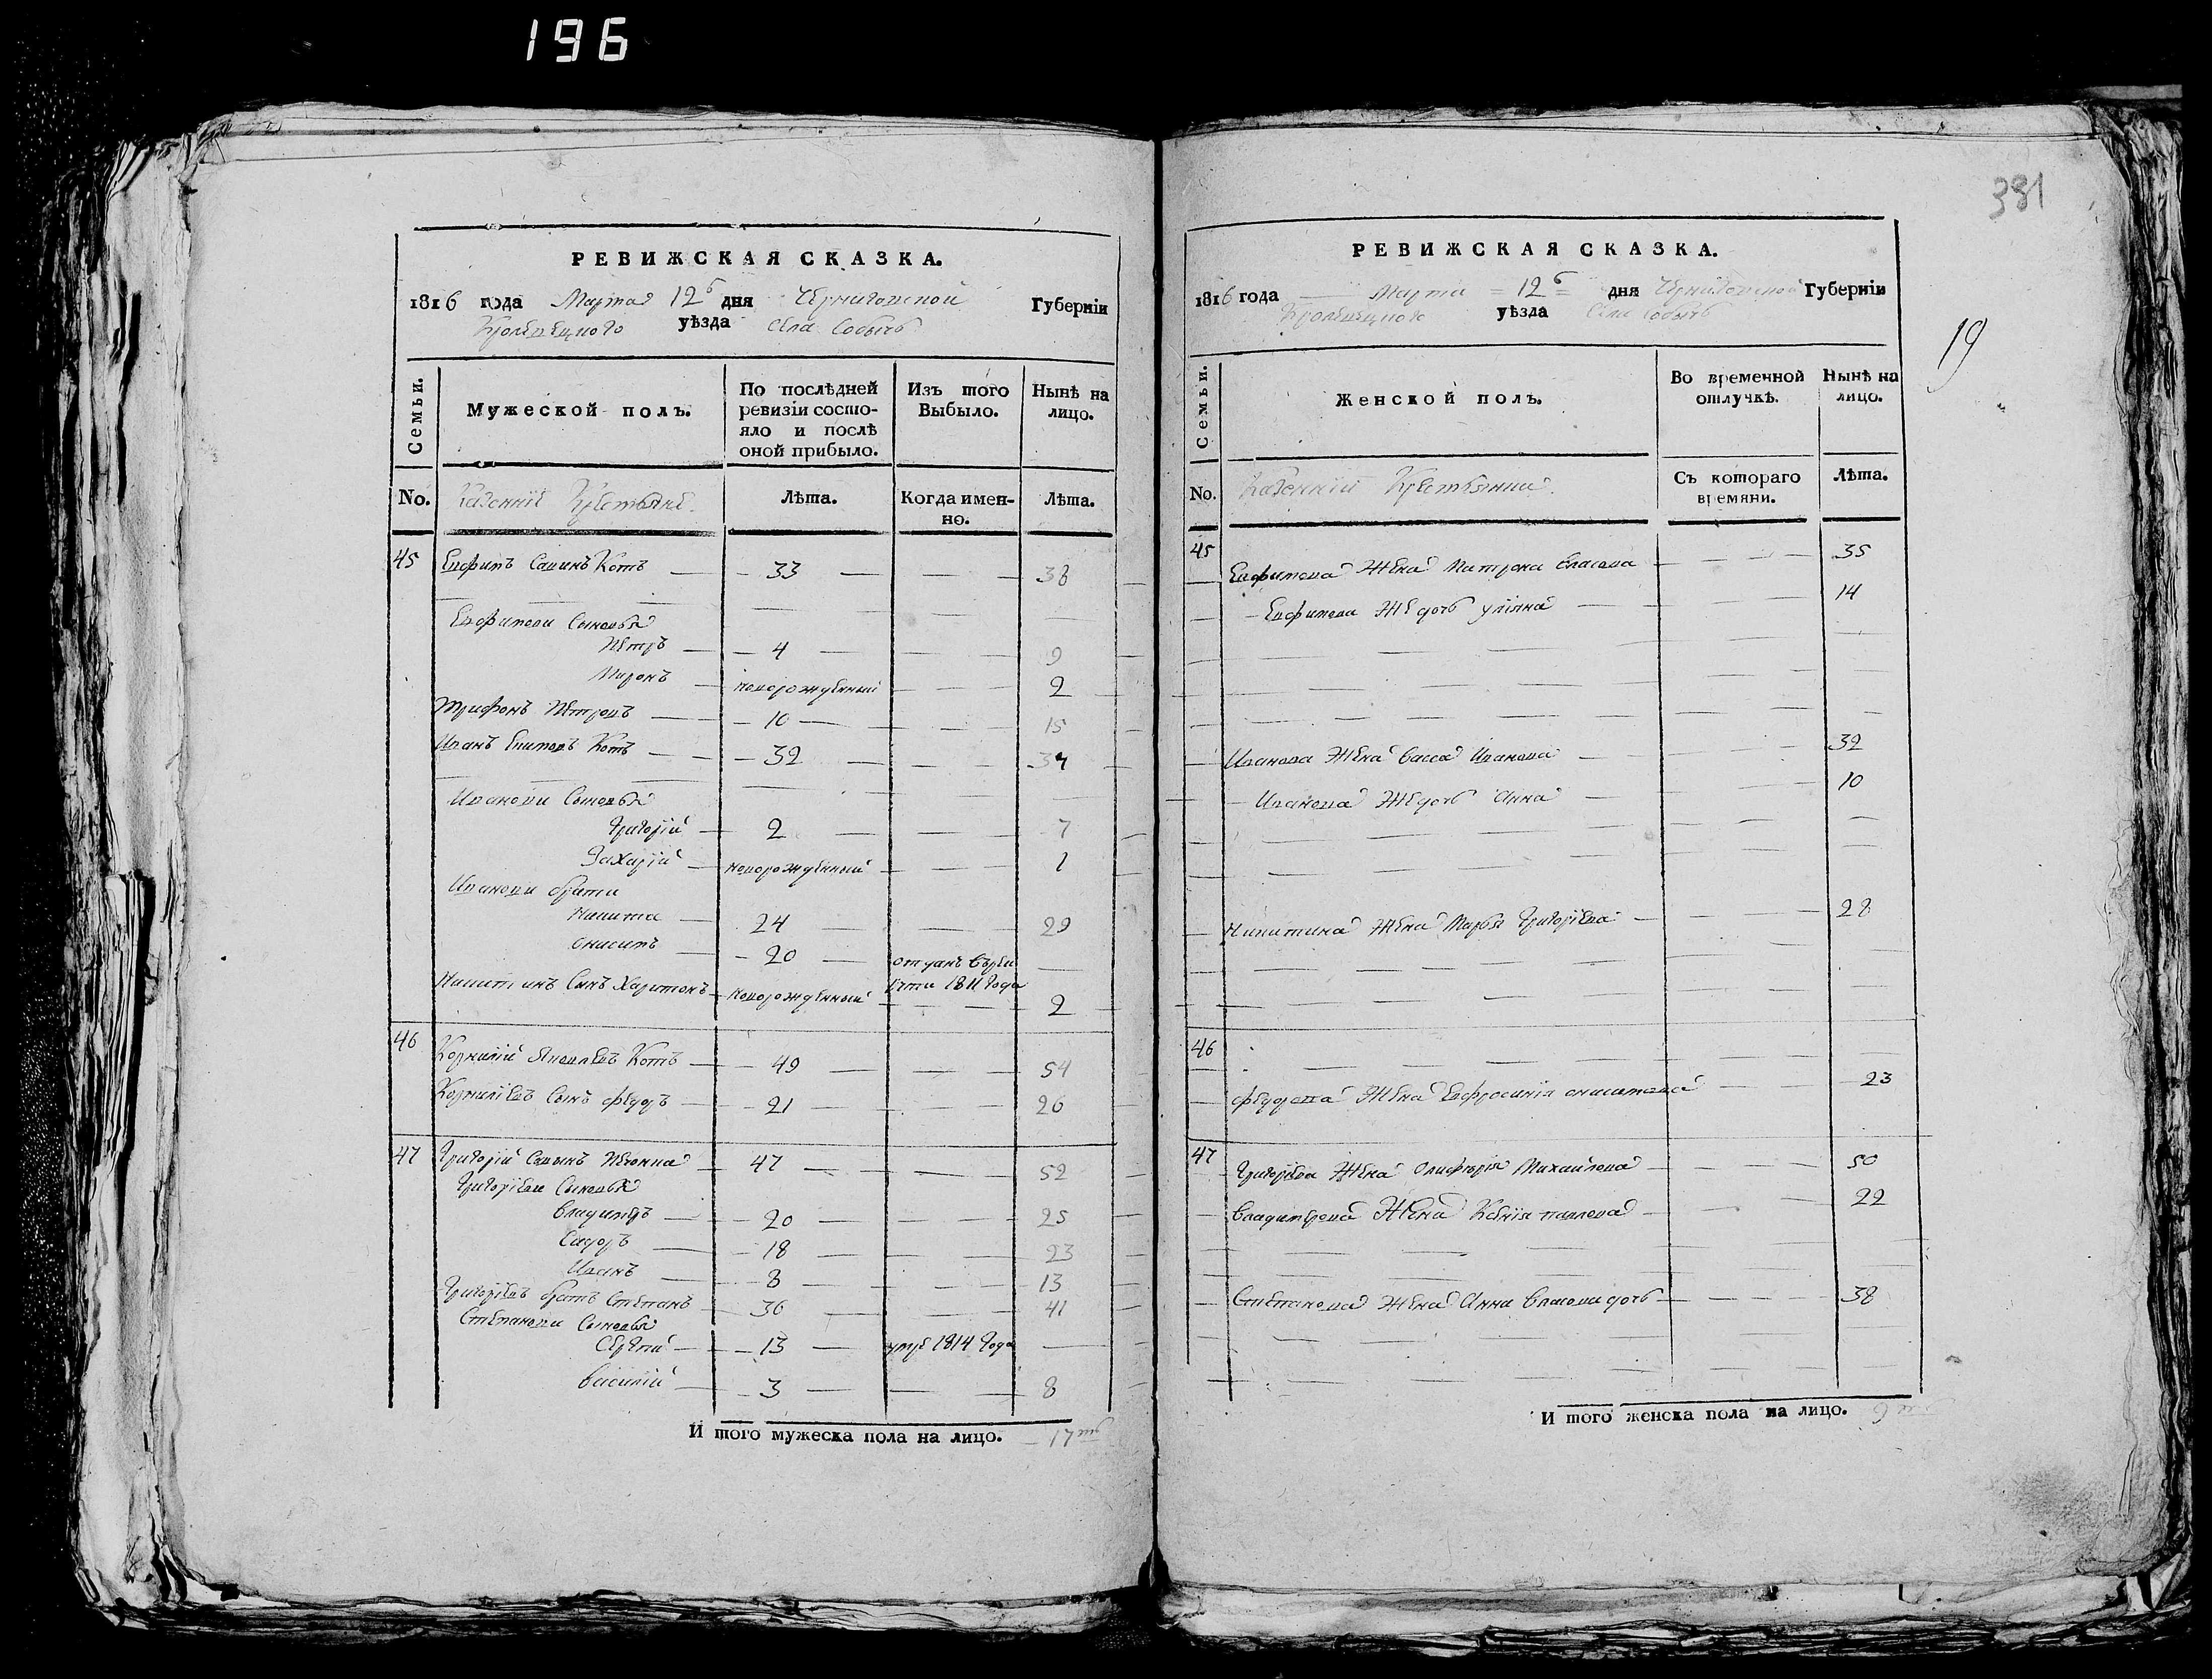 196
РЕВИЖСКАЯ СКАЗКА.
1816 года Марта 12 дня Черниговской Губерніи
Кролевецкого уѣзда Села Собычь
Семьи.
Мужеской полъ.
По послѣдней ревизіи состояло и послѣ оной прибыло.
Изъ того Выбыло.
Нынѣ на лицо.
No. Казенніе Крестьяне. Лѣта. Когда именно. Лѣта.
45 Евфимъ Савинъ Котъ 33 38
Евфимови Сыновья
Петръ 4 9
Миронъ новорожденный 2
Трифонъ Петровъ 10 15
Иванъ Котъ 32 37
Иванови Сыновья
Григорій 2 7
Захарій новорожденный 1
Иванови брати
Никита 24 29
Онисимъ 20 отданъ въ рекруты 1811 года
Никитинъ Сынъ Харитонъ новорожденный 2
46 Корнилій Яковлевъ Котъ 49 54
Корниліевъ Сынъ Федоръ 21 26
47 Григорій 47 52
Григоріеви Сыновья
Владимеръ 20 25
Сидоръ 18 23
Иванъ 8 13
Григоріевъ братъ Степанъ 36 41
Степанови Сыновья
Сергій 13 умре 1814 года
Василій 3 8
И того мужеска пола на лицо. 17
381
19
РЕВИЖСКАЯ СКАЗКА.
1816 года Марта 12 дня Черниговской Губерніи
Кролевецкого уѣзда Села Собычь
Семьи.
Женской полъ.
Во временной отлучкѣ.
Нынѣ на лицо.
No. Казенніи Крестьянки. Съ котораго времяни. Лѣта.
45 Евфимова Жена Матрона Власова 35
Евфимова Же дочь Уліяна 14
Иванова Жена Васса Иванова 32
Иванова Же дочь Анна 10
Никитина Жена Марья Григоріева 28
46
Федорова Жена Евфросинія Онисимова 23
47 Григоріева Жена Михайлова 50
Владимерова Жена Ксенія Павлова 22
Степанова Жена Анна Власова дочь 38
И того женска пола на лицо. 9